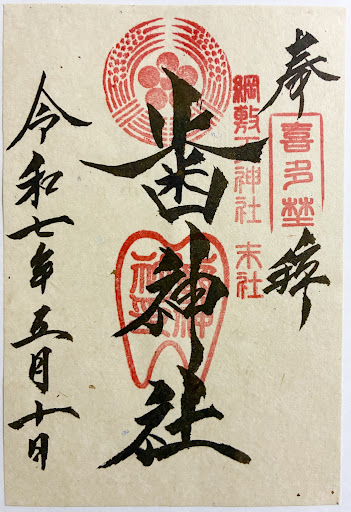 奉拝
喜多埜
綱敷天神社 末社
歯神社
令和七年五月十日